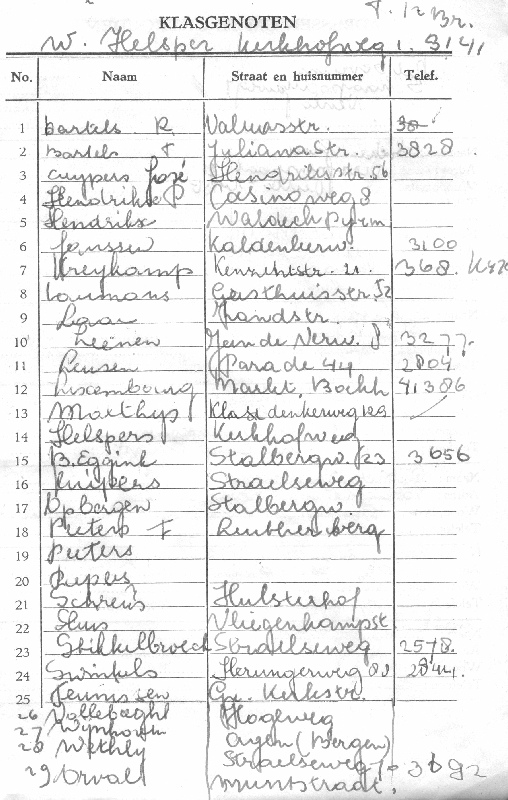 T. 12 Br.
KLASGENOTEN
W. Helsper Kerkhofweg 1. 3141
No. Naam Straat en huisnummer Telef.
1 Bartels R. Valuasstr.
2 Bartels F Julianastr. 3828.
3 Cuypers José Hendrikstr 56
4 Hendrikse P Casinoweg 8
5 Hendrikx Waldeck Pyrm
6 Janssen Kaldenkerw. 3100
7 Kreykamp 21. 368.
8 Laumans Gasthuisstr 52
9 Zandstr.
10 Leenen Jean de Nerv. 8 3277.
11 Leusen Parade 44 2804
12 Luxembourg Markt, 41386
13 Matthys Klaasdenkerweg 129
14 Helspers Kerkhofweg
15 B. Eggink Stalbergw. 123 3656
16 Kuypers Straelseweg
17 Op Bergen Stalbergw.
18 Pieters F Leutherberg
19 Peeters
20 Pepers
21 Schreurs Hulsterhof
22 Sluis Vliegenkampst
23 Stikkelbroeck Straelseweg 2578.
24 Swinkels Herungerweg
25 Teunissen Gr. Kerkstr.
26 Hogeweg
27 (Bergen)
28 Wethly Straelseweg 3692
29 Orval Muntstraat.